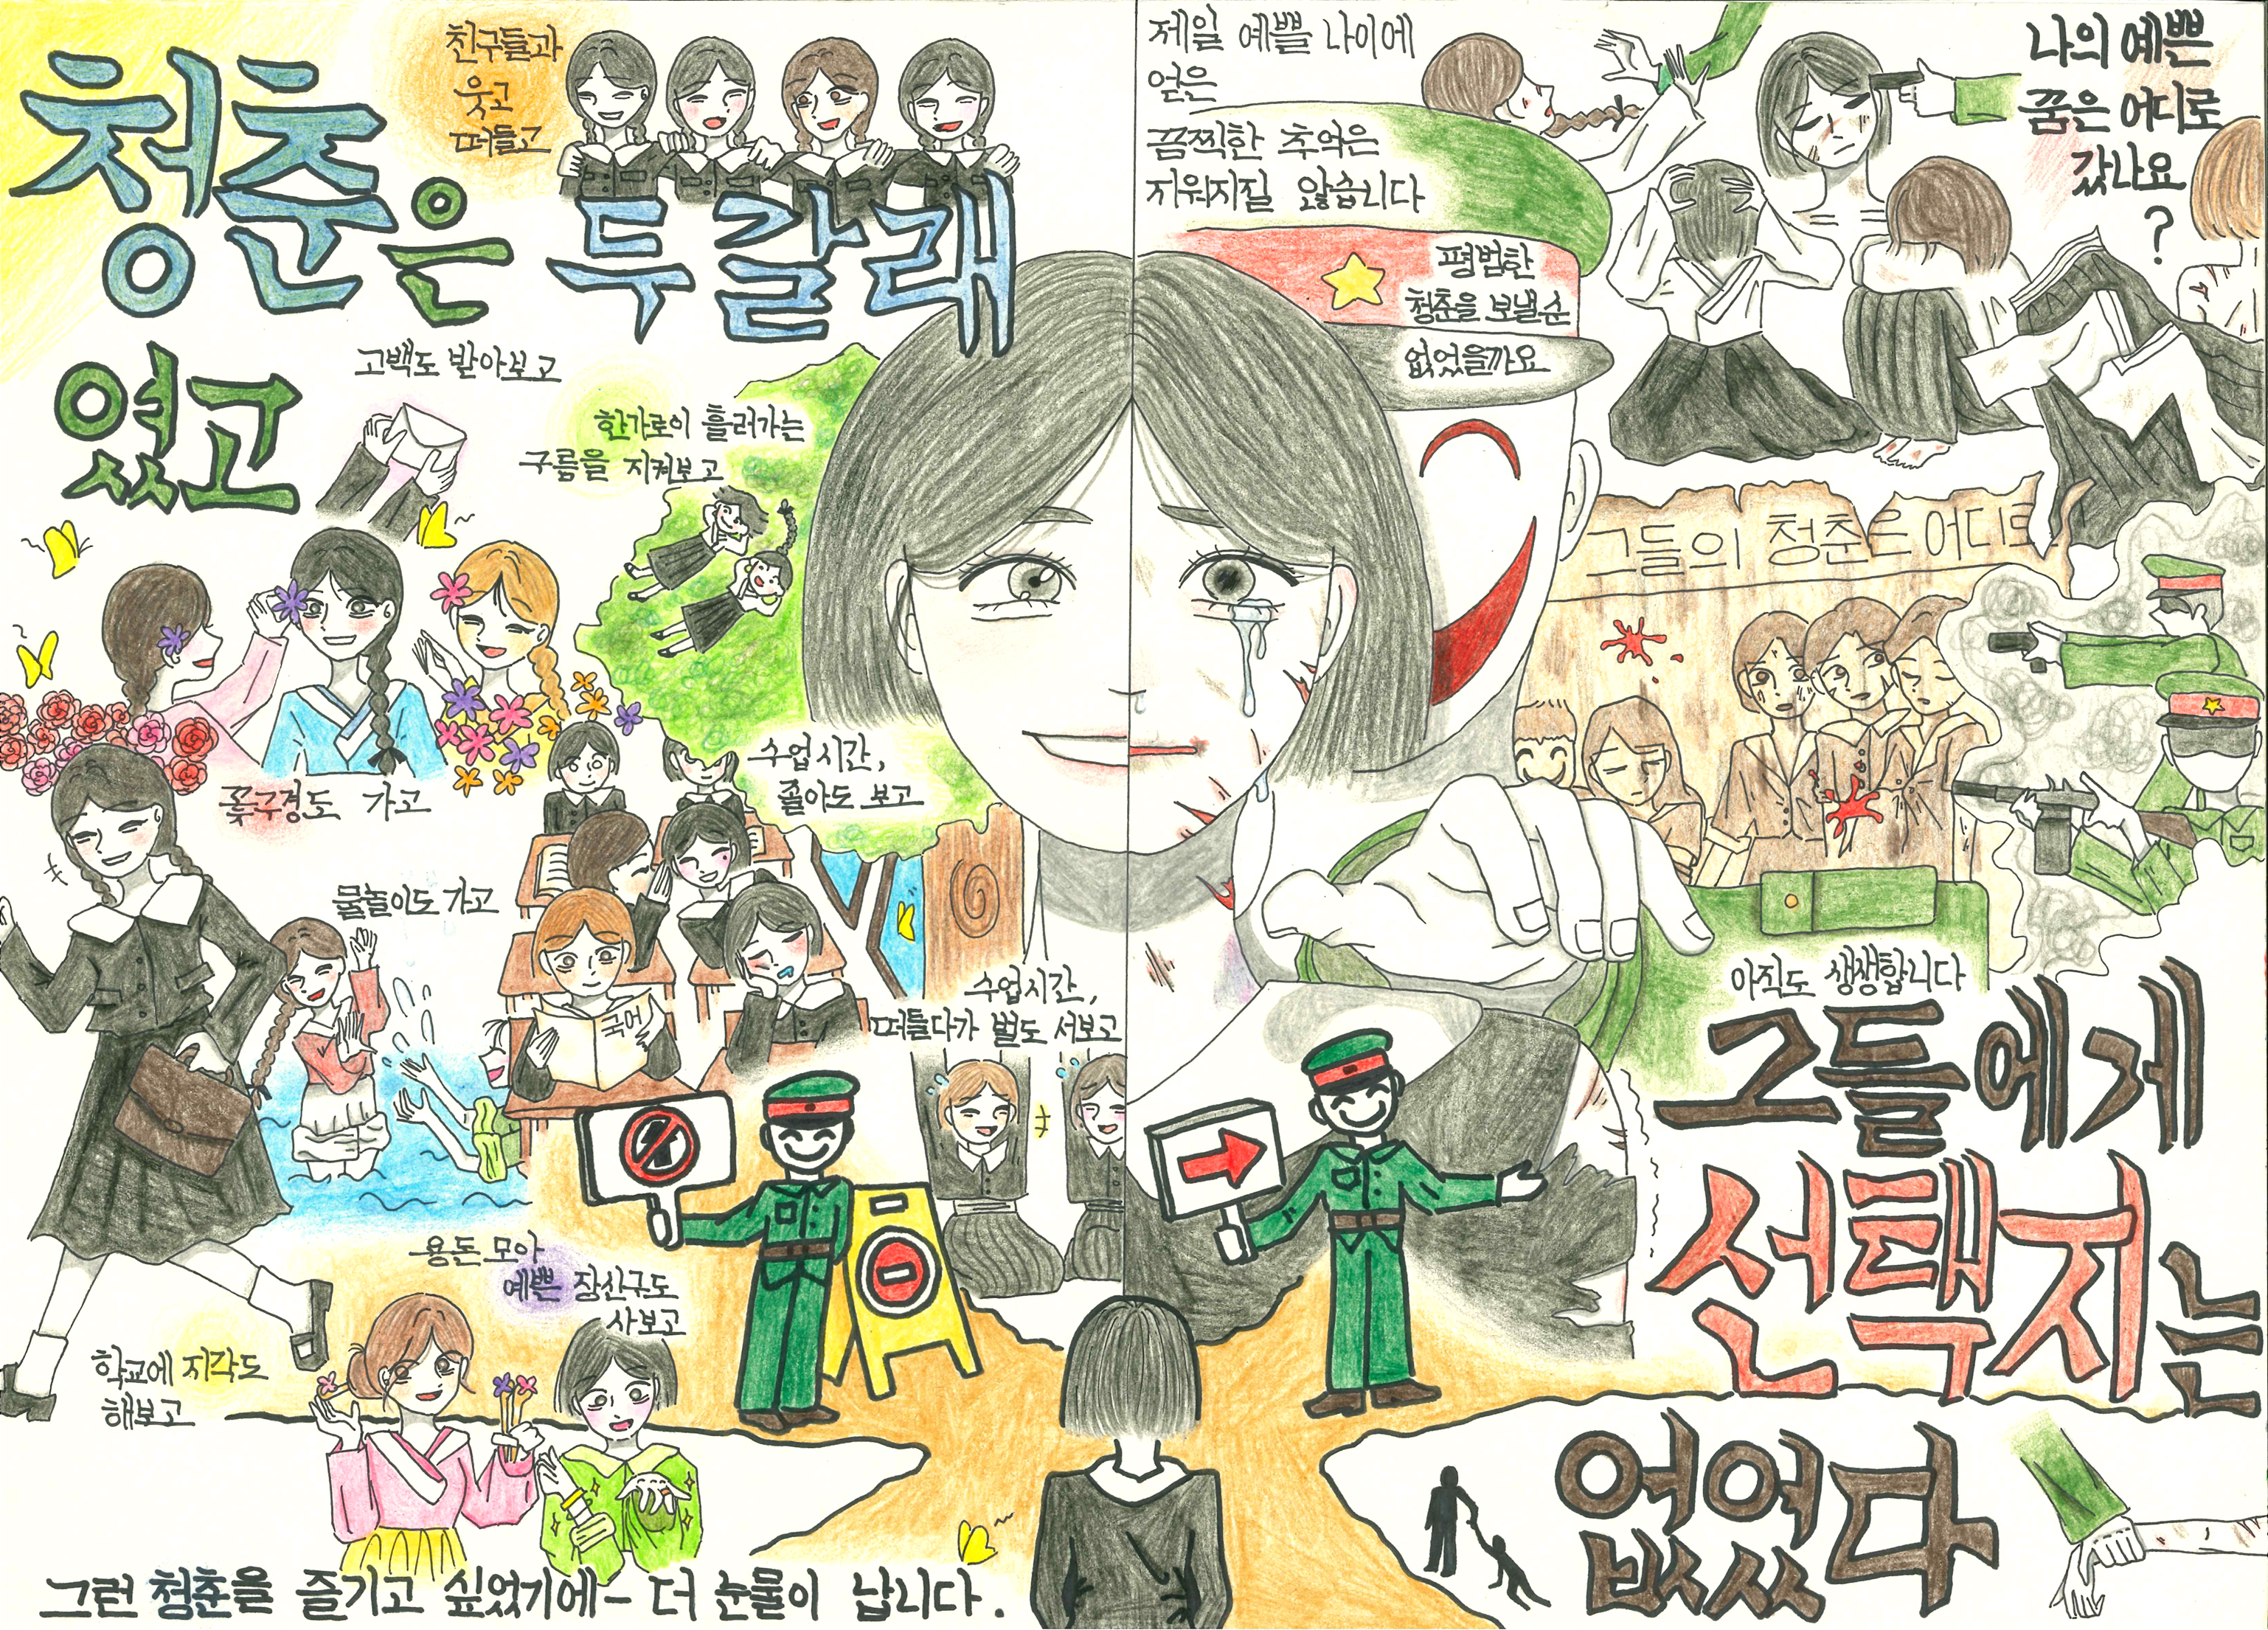 청춘은 두갈래
였고
친구들과
웃고
떠들고
고백도 받아보고
한가로이 흘러가는
구름을 지켜보고
꽃구경도 가고
수업시간,
졸아도 보고
물놀이도 가고
국어
수업시간,
떠들다가 벌도 서보고
용돈 모아
예쁜 장신구도
사보고
학교에 지각도
해보고
그런 청춘을 즐기고 싶었기에- 더 눈물이 납니다.
제일 예쁠 나이에
얻은
끔찍한 추억은
지워지질 않습니다
나의 예쁜
꿈은 어디로
갔나요
?
평범한
청춘을 보낼 순
없었을까요
그들의 청춘은 어디로
아직도 생생합니다
그들에게
선택지는
없었다